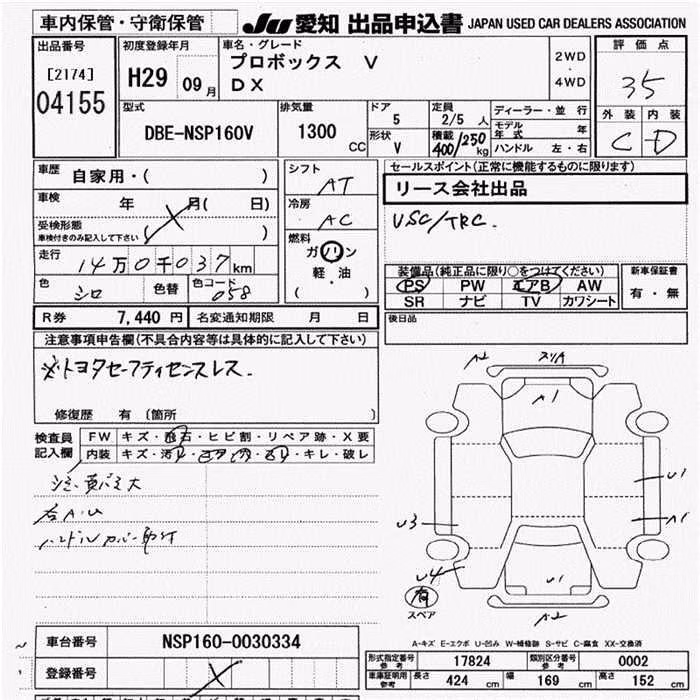 車内保管・守衛保管
JU 愛知 出品申込書 JAPAN USED CAR DEALERS ASSOCIATION
出品番号
[2174]
04155
初度登録年月
H29 09月
車名・グレード
プロボックス V
DX
2WD
・
4WD
評価点
35
外装 内装
C D
型式
DBE-NSP160V
排気量
1300
CC
ドア
5
形状
V
定員
2/5 人
積載
400/250
kg
ディーラー・並行
モデル年式 年
ハンドル 左・右
車歴
自家用・( )
車検
年 月( 日)
受検形態
車検付きのみ記入して下さい ( )
走行
14万0千037km
色
シロ
色替
色コード
058
シフト
AT
冷房
AC
燃料
ガソリン
軽・油
( )
セールスポイント(正常に機能するものに限ります)
リース会社出品
VSC/TRC.
装備品(純正品に限り○をつけてください)
PS PW エアB AW
SR ナビ TV カワシート
新車保証書
有・無
R券 7,440 円 名変通知期限 月 日
後日品
注意事項申告欄(不具合内容等は具体的に記入して下さい)
※トヨタセーフティセンスレス.
修復歴 有 〔箇所 〕
検査員
記入欄
FW キズ・飛石・ヒビ割・リペア跡・X要
内装 キズ・汚レ・コゲ・穴・スリ・キレ・破レ
ハンドルカバー取付
A2
A1
U1
A1
U3
U4
U1
A2
有
スペア
A-キズ E-エクボ U-凹み W-補修跡 S-サビ C-腐食 XX-交換済
車台番号 NSP160-0030334
登録番号
形式指定番号
参考
17824
類別区分番号
参考
0002
車庫証明用
参考
長さ 424 cm 幅 169 cm 高さ 152 cm